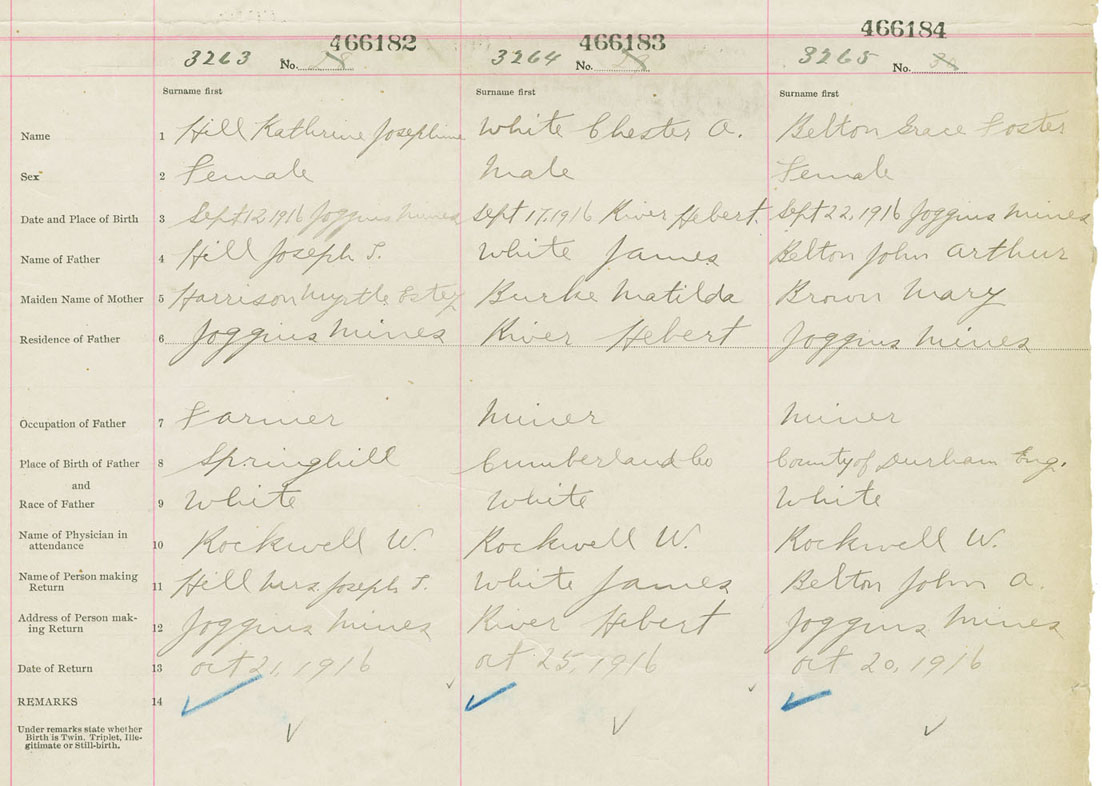 466182 466183 466184
3263 No. 3264 No. 3265 No.
Surname first Surname first Surname first
Name 1 Hill Kathrine Josephine White Chester A. Belton Grace Foster
Sex 2 Female Male Female
Date and Place of Birth 3 Sept 12, 1916 Joggins Mines Sept 17, 1916 River Hebert. Sept 22, 1916 Joggins Mines
Name of Father 4 Hill Joseph S. White James Belton John Arthur
Maiden Name of Mother 5 Harrison Myrtle Estey Burke Matilda Brown Mary
Residence of Father 6 Joggins Mines River Hebert Joggins Mines
Occupation of Father 7 Farmer Miner Miner
Place of Birth of Father 8 Springhill Cumberland Co County of Durham Eng.
and
Race of Father 9 White White White
Name of Physician in
attendance 10 Rockwell W. Rockwell W. Rockwell W.
Name of Person making
Return 11 Hill Mrs. Joseph S. White James Belton John A.
Address of Person mak-
ing Return 12 Joggins Mines River Hebert Joggins Mines
Date of Return 13 Oct 21, 1916 Oct 25, 1916 Oct 20, 1916
REMARKS 14
Under remarks state whether
Birth is Twin. Triplet, Ille-
gitimate or Still-birth.